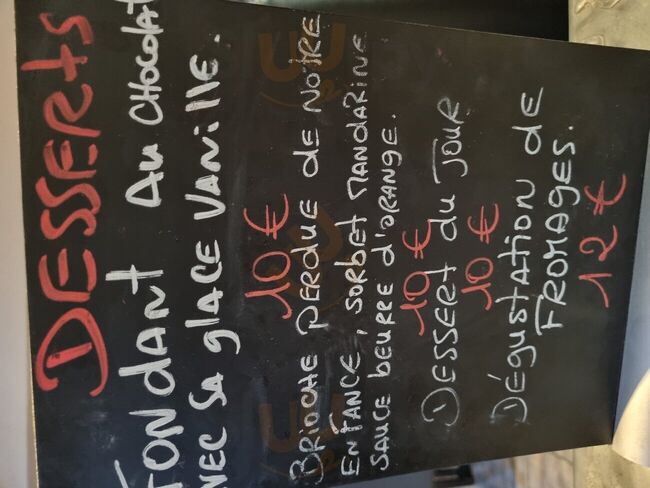 DESSERTS
FONDANT AU CHOCOLAT
AVEC SA GLACE VANILLE.
10 €
BRIOCHE PERDUE DE NOTRE
ENFANCE, SORBET MANDARINE
SAUCE BEURRE D'ORANGE.
10 €
DESSERT DU JOUR
10 €
DÉGUSTATION DE
FROMAGES.
12 €